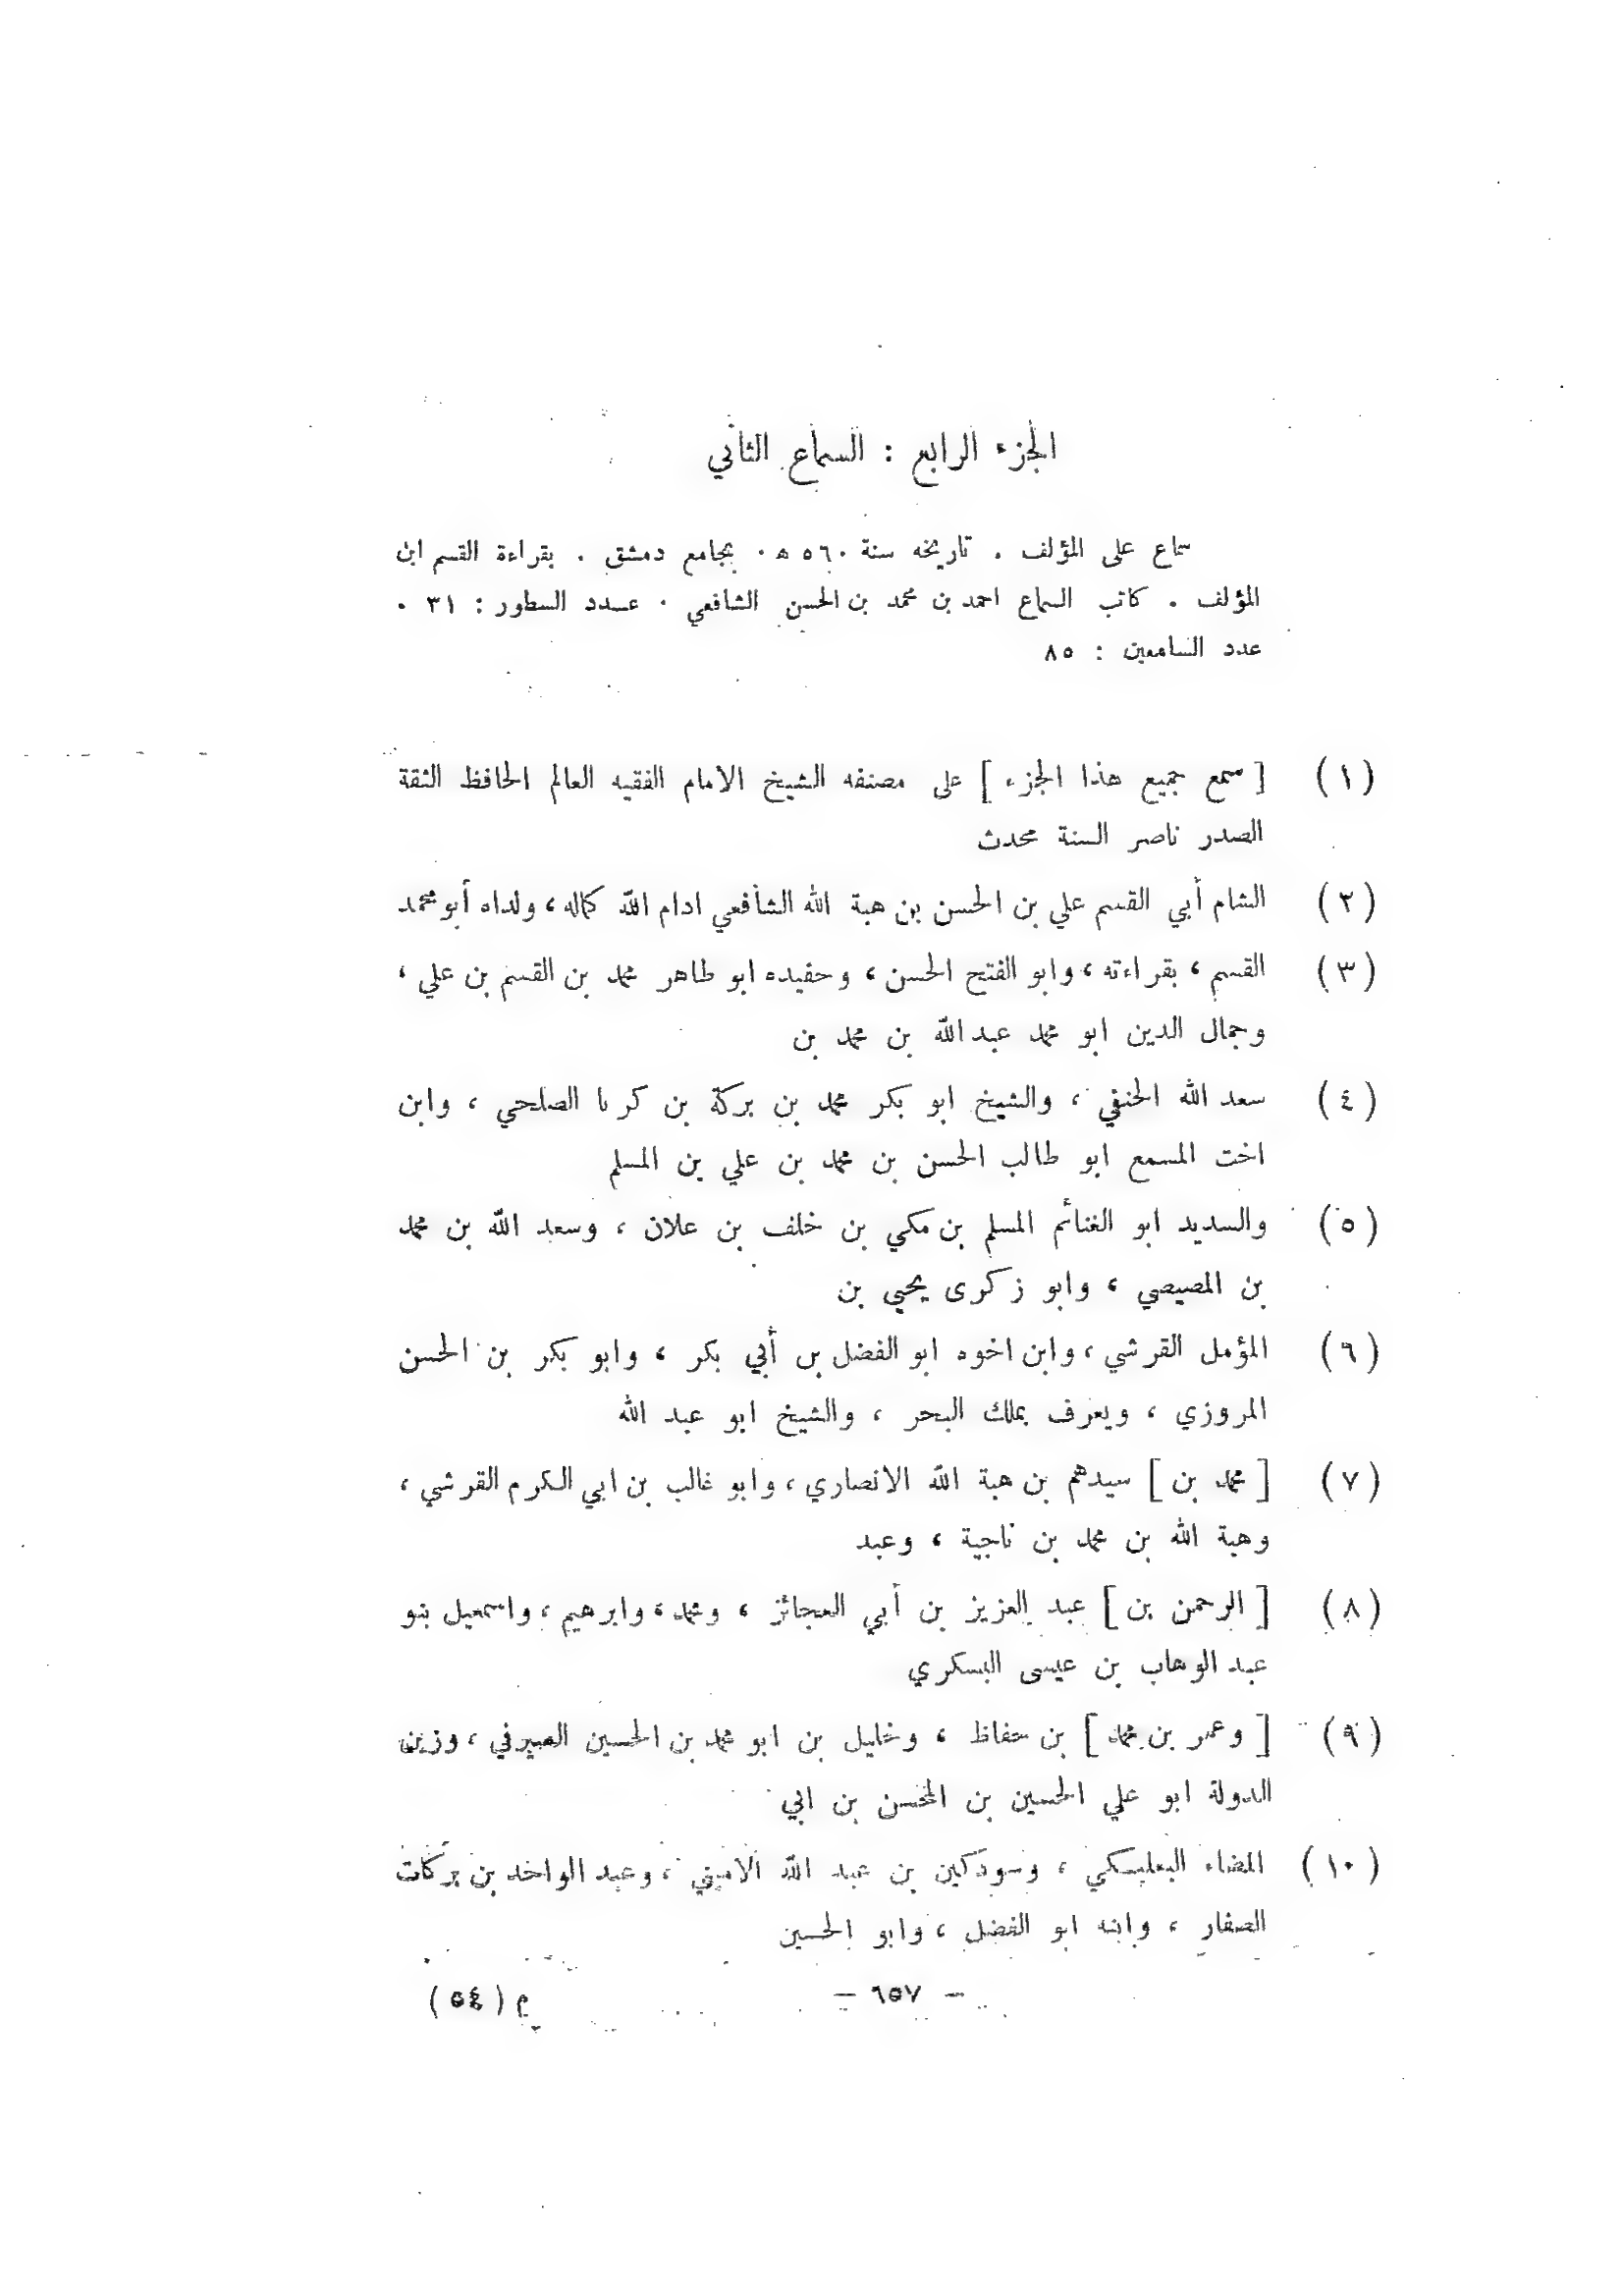 الجزء الرابع : السماع الثاني
سماع على المؤلف . تاريخه سنة ٥٦٠ ه . بجامع دمشق . بقراءة القسم ابن
المؤلف . كاتب السماع احمد بن محمد بن الحسن الشافعي . عدد السطور : ٣١ .
عدد السامعين : ٨٥
(١) [ سمع جميع هذا الجزء ] على مصنفه الشيخ الامام الفقيه العالم الحافظ الثقة
الصدر ناصر السنة محدث
(٢) الشام أبي القسم علي بن الحسن بن هبة الله الشافعي ادام الله كماله ، ولداه أبو محمد
(٣) القسم ، بقراءته ، وابو الفتح الحسن ، وحفيده ابو طاهر محمد بن القسم بن علي ،
وجمال الدين ابو محمد عبد الله بن محمد بن
(٤) سعد الله الحنفي ، والشيخ ابو بكر محمد بن بركة بن كرما الصلحي ، وابن
اخت المسمع ابو طالب الحسن بن محمد بن علي بن المسلم
(٥) والسديد ابو الغنائم المسلم بن مكي بن خلف بن علان ، وسعد الله بن محمد
بن المصيصي ، وابو زكرى يحيى بن
(٦) المؤمل القرشي ، وابن اخوه ابو الفضل بن أبي بكر ، وابو بكر بن الحسن
المروزي ، ويعرف بملك البحر ، والشيخ ابو عبد الله
(٧) [ محمد بن ] سيدهم بن هبة الله الانصاري ، وابو غالب بن ابي الكرم القرشي ،
وهبة الله بن محمد بن ناجية ، وعبد
(٨) [ الرحمن بن ] عبد العزيز بن أبي العجائز ، ومحمد ، وابرهيم ، واسمعيل بنو
عبد الوهاب بن عيسى البسكري
(٩) [ وعمر بن محمد ] بن حفاظ ، وخليل بن ابو محمد بن الحسين الصيرفي ، وزين
الدولة ابو علي الحسين بن المحسن بن ابي
(١٠) المضاء البعلبكي ، وسودكين بن عبد الله الاميني ، وعبد الواحد بن بركات
الصفار ، وابنه ابو الفضل ، وابو الحسين
— ٦٥٧ —
م ( ٥٤ )